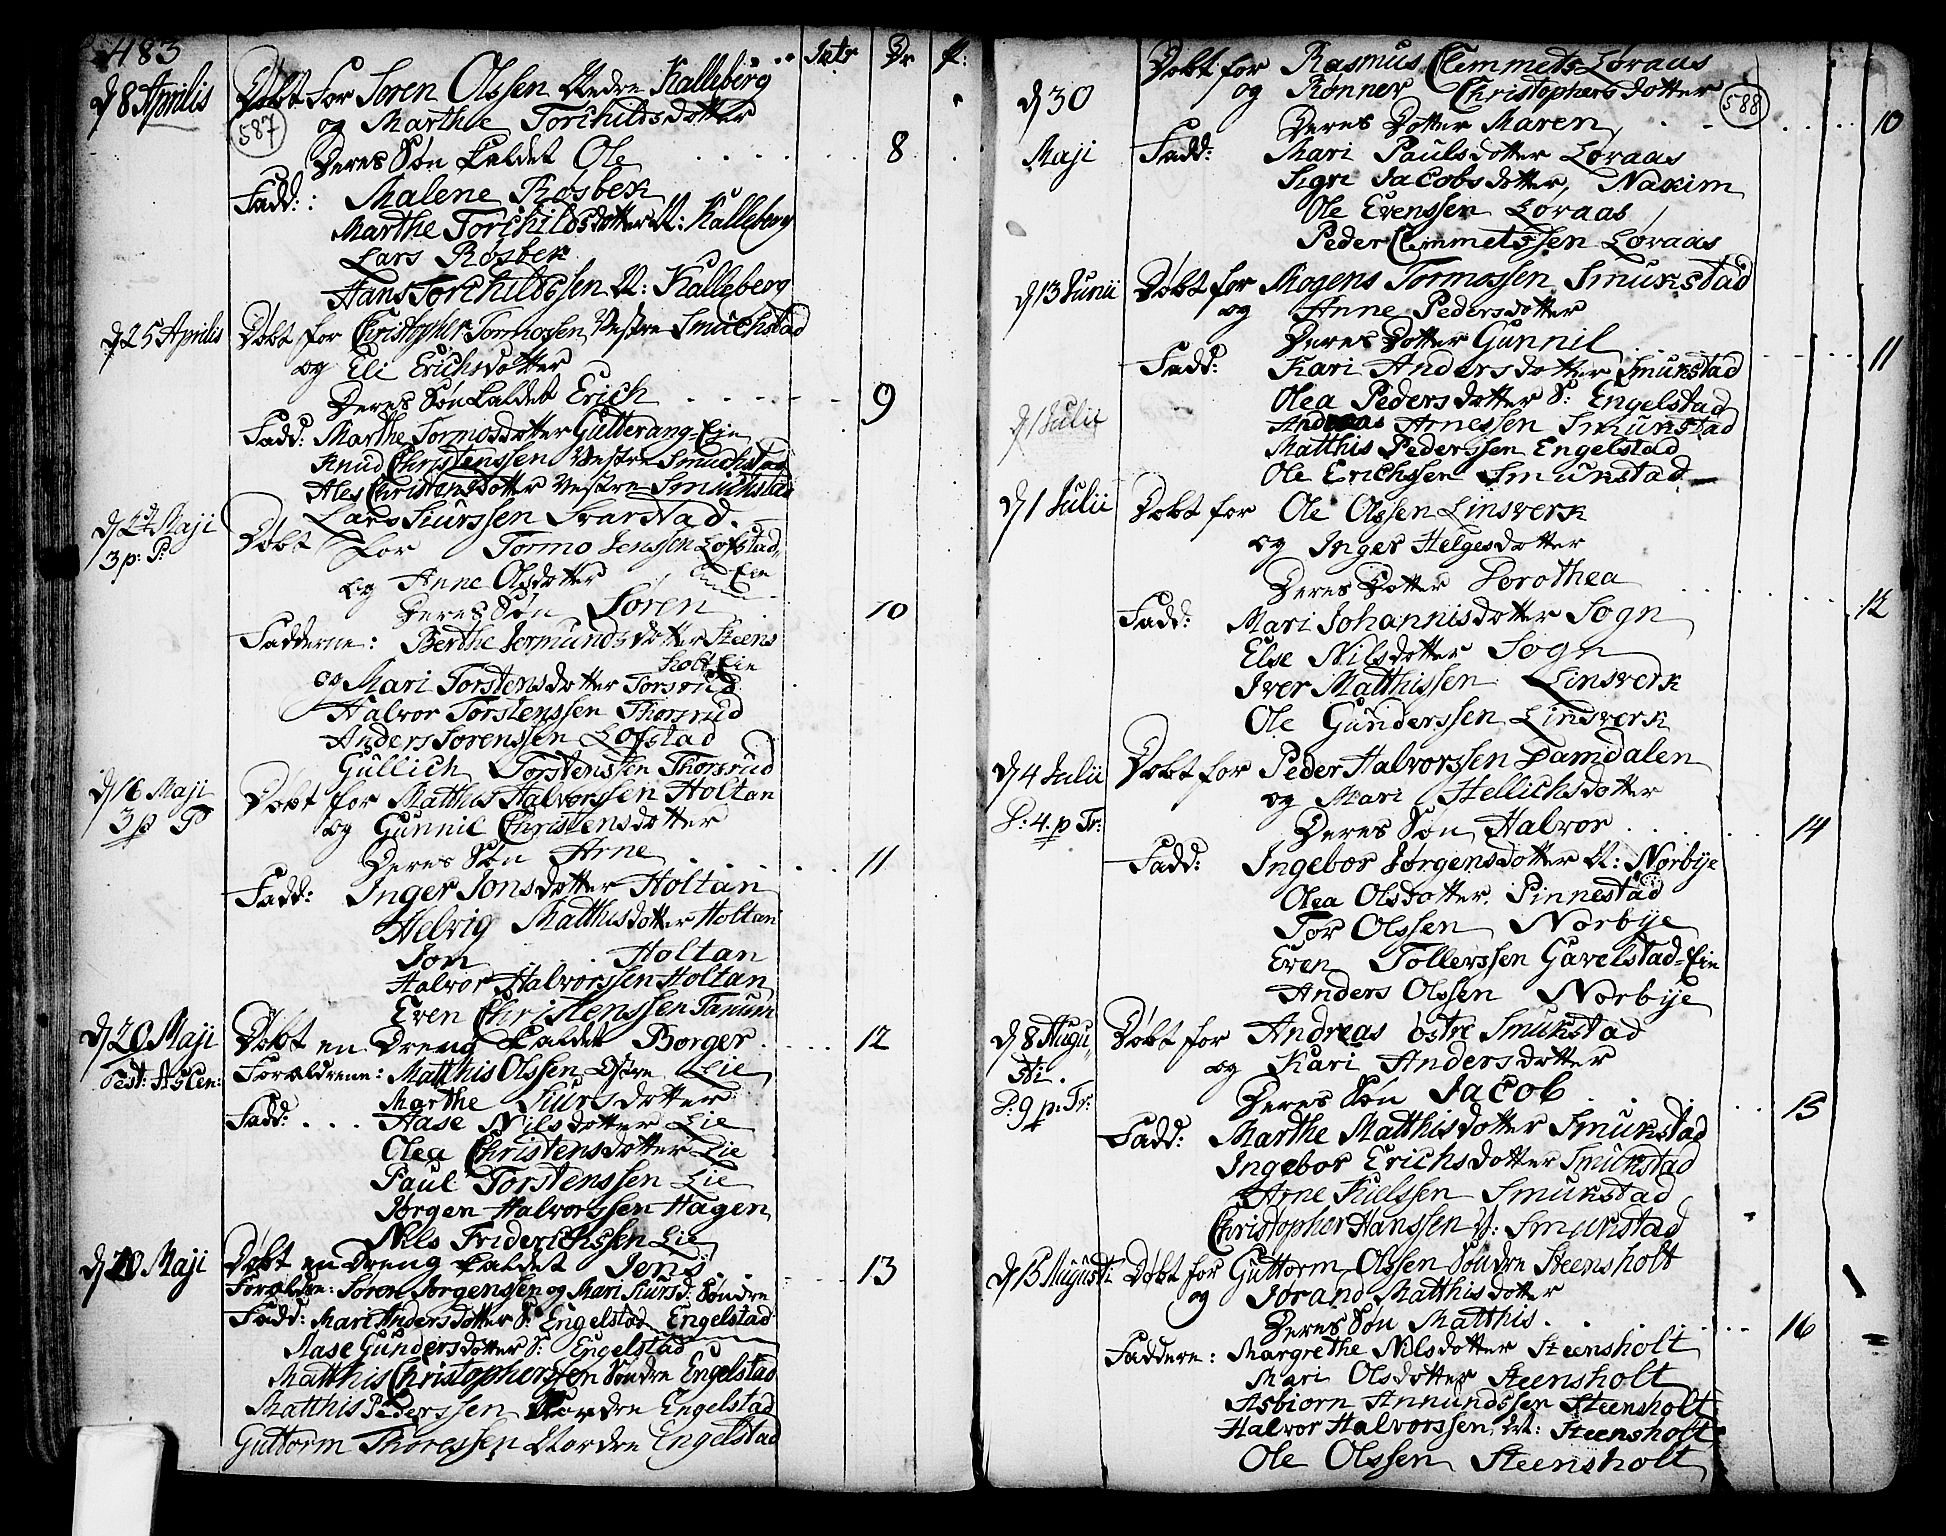 483
Intr Dr P:
d 8 Aprilis Døbt for Søren Olssen Nedre Kalleberg
587 og Marthe Torchildsdotter
Deres Søn kaldet Ole 8
Fadd: Malene Røsbek
Marthe Torchildsdotter N: Kalleberg
Lars Røsbek
Hans Torchildssen N: Kalleberg
d 25 Aprilis Døbt for Christopher Tormossen Vestre Smuchstad
og Eli Erichsdotter
Deres Søn kaldet Erich 9
Fadd: Marthe Tormosdotter Gutterang-Eie
Knud Christenssen Vestre Smuchstad
Ales Christensdotter Vestre Smuchstad
Lars Siurssen Svarstad.
d 2 Maji Døbt for Tormo Jenssen Lofstad
3 p: P: og Anne Olsdotter Eie
Deres Søn Søren 10
Fadderne: Berthe Jermundsdotter Steens
holt Eie
og Mari Torstensdotter Torsrud
Halvor Torstenssen Thorsrud
Anders Sorenssen Lofstad
Gullich Torstenssen Thorsrud
d 16 Maji Døbt for Mathis Halvorssen Holtan
3 p P og Gunnil Christensdotter
Deres Søn Arne 11
Fadd: Inger Jonsdotter Holtan
Helvig Matthisdotter Holtan
Jon Holtan
Halvor Halvorssen Holtan
Even Christenssen Fanum
d 20 Maji Døbt en Dreng kaldet Borger 12
Fest: Ascen: Forældrene: Matthis Olssen Østre Lie
Marthe Siursdotter
Fadd: Aase Nilsdotter Lie
Olea Christensdotter Lie
Paul Torstenssen Lie
Jørgen Halvorssen Hagen
Nils Friderichssen Lie
d 20 Maji Døbt en Dreng kaldet Jens: 13
Forældre: Søren Jørgenssen og Mari Siursd: Søndre
Fadd: Mari Andersdotter S: Engelstad Engelstad
Aase Gundersdotter S: Engelstad
Matthis Christopherssen Søndre Engelstad
Matthis Pederssen Nordre Engelstad
Guttorm Thoressen Nordre Engelstad
Døbt for Rasmus Clemmets Løraas
d 30 og Rønner Christophersdotter 588
Deres Dotter Maren 10
Maji Fadd: Mari Paulsdotter Løraas
Sigri Jacobsdotter Nakim
Ole Evenssen Løraas
Peder Clemmetssen Løraas
d 13 Junii Døbt for Mogens Tormossen Smukstad
og Anne Pedersdotter
Deres Dotter Gunnil 11
Fadd: Kari Andersdotter Smukstad
Olea Pedersdotter S: Engelstad
d 1 Julii Andreas Arnessen Smukstad
Matthis Pederssen Engelstad
Ole Erichssen Smukstad
d 1 Julii Døbt for Ole Olssen Linsverk
og Inger Helgesdotter
Deres Dotter Dorothea 12
Fadd: Mari Johannisdotter Sogn
Else Nilsdotter Sogn
Iver Matthissen Linsverk
Ole Gunderssen Linsverk
d 4 Julii Døbt for Peder Halvorssen Damdalen
og Mari Hellichsdotter
D: 4. p Tr: Deres Søn Halvor 14
Fadd: Ingebor Jørgensdotter N: Norbye
Olea Olsdotter Pinnestad
Tor Olssen Norbye
Even Tollerssen Gavelstad-Eie
Anders Olssen Norbye
d 8 Augu Døbt for Andreas Østre Smukstad
sti. og Kari Andersdotter
D: 9 p. Tr: Deres Søn Jacob 15
Fadd: Marthe Matthisdotter Smukstad
Ingebor Erichsdotter Smukstad
Arne Kielssen Smukstad
Christopher Hanssen V: Smukstad
d 15 Augusti Døbt for Guttorm Olssen Søndre Steensholt
og Jorand Matthisdotter
Deres Søn Matthis 16
Faddere: Margrethe Nilsdotter Steensholt
Mari Olsdotter Steensholt
Asbiorn Annundssen Steensholt
Halvor Halvorssen N: Steensholt
Ole Olssen Steensholt